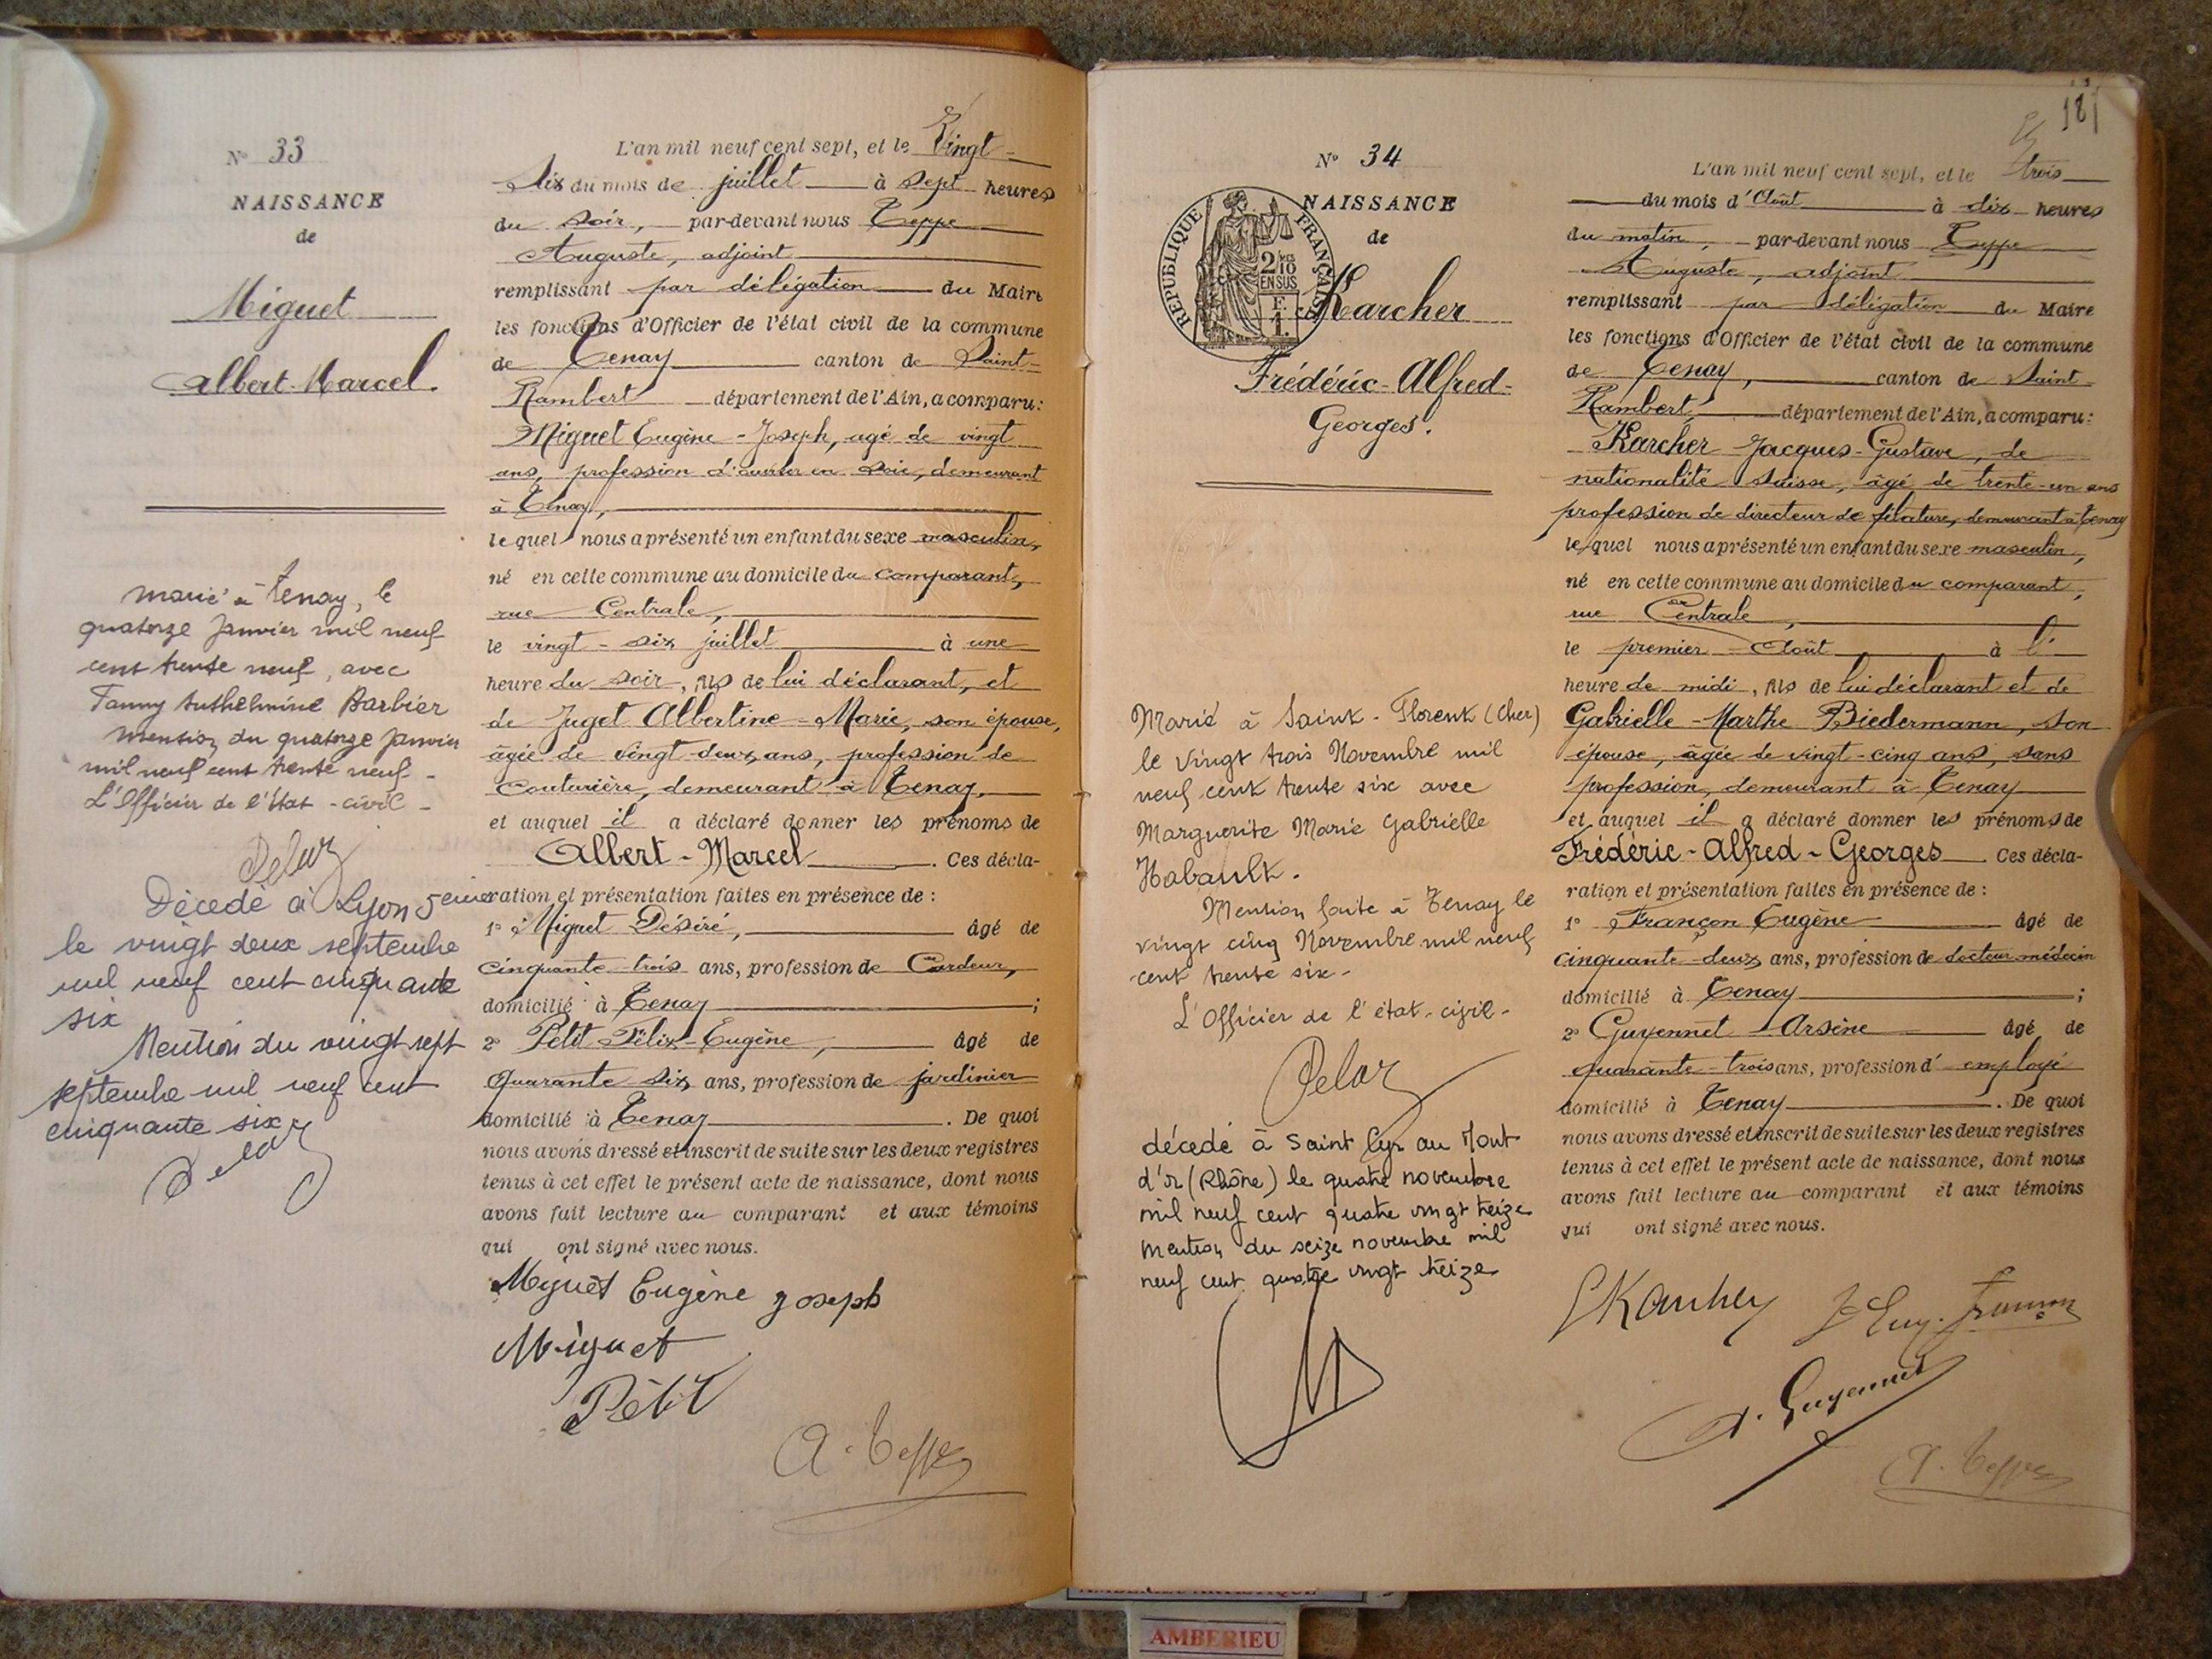 N° 33
NAISSANCE
de
Miguet
Albert-Marcel.
marié à Tenay, le
quatorze Janvier mil neuf
cent trente neuf, avec
Fanny Anthelmine Barbier
mention du quatorze Janvier
mil neuf cent trente neuf -
L'Officier de l'état-civil -
Décédé à Lyon 5eme
le vingt deux septembre
mil neuf cent cinquante
six
Mention du vingt sept
septembre mil neuf cent
cinquante six
L'an mil neuf cent sept, et le Vingt-
six du mois de juillet à sept heures
du soir, par-devant nous Teppe
Auguste, adjoint
remplissant par délégation du Maire
les fonctions d'Officier de l'état civil de la commune
de Tenay canton de Saint-
Rambert département de l'Ain, a comparu:
Miguet Eugène-Joseph, agé de vingt
ans, profession d'ouvrier en soie, demeurant
à Tenay,
lequel nous a présenté un enfant du sexe masculin,
né en cette commune au domicile du comparant,
rue Centrale,
le vingt-six juillet à une
heure du soir, fils de lui déclarant, et
de Juget Albertine-Marie, son épouse,
âgée de vingt-deux ans, profession de
couturière, demeurant à Tenay,
et auquel il a déclaré donner les prénoms de
Albert-Marcel. Ces décla-
ration et présentation faites en présence de:
1° Miguet Désiré, âgé de
cinquante-trois ans, profession de Cardeur,
domicilié à Tenay;
2° Petit Félix-Eugène, âgé de
quarante six ans, profession de jardinier
domicilié à Tenay. De quoi
nous avons dressé et inscrit de suite sur les deux registres
tenus à cet effet le présent acte de naissance, dont nous
avons fait lecture au comparant et aux témoins
qui ont signé avec nous.
Miguet Eugène Joseph
Miguet
Petit
A. Teppe
181
N° 34
NAISSANCE
de
RÉPUBLIQUE FRANÇAISE
2/10
EN SUS
Karcher
Frédéric-Alfred-
Georges.
Marié à Saint-Florent (Cher)
le vingt trois Novembre mil
neuf cent trente six avec
Marguerite Marie Gabrielle
Habault.
Mention faite à Tenay le
vingt cinq Novembre mil neuf
cent trente six-
L'Officier de l'état-civil-
décédé à Saint Cyr au Mont
d'or (Rhône) le quatre novembre
mil neuf cent quatre vingt treize
mention du seize novembre mil
neuf cent quatre vingt treize
L'an mil neuf cent sept, et le trois
du mois d'Août à dix heures
du matin, par-devant nous Teppe
Auguste, adjoint
remplissant par délégation du Maire
les fonctions d'Officier de l'état civil de la commune
de Tenay, canton de Saint-
Rambert département de l'Ain, a comparu:
Karcher Jacques-Gustave, de
nationalité suisse, âgé de trente-un ans
profession de directeur de filature, demeurant à Tenay
lequel nous a présenté un enfant du sexe masculin,
né en cette commune au domicile du comparant,
rue Centrale,
le premier Août à l'
heure de midi, fils de lui déclarant et de
Gabrielle-Marthe Biedermann, son
épouse, âgée de vingt-cinq ans, sans
profession, demeurant à Tenay
et auquel il a déclaré donner les prénoms de
Frédéric-Alfred-Georges. Ces décla-
ration et présentation faites en présence de:
1° Françon Eugène âgé de
cinquante-deux ans, profession de docteur médecin
domicilié à Tenay;
2° Guyennet Arsène âgé de
quarante-trois ans, profession d'employé
domicilié à Tenay. De quoi
nous avons dressé et inscrit de suite sur les deux registres
tenus à cet effet le présent acte de naissance, dont nous
avons fait lecture au comparant et aux témoins
qui ont signé avec nous.
A. Guyennet
A. Teppe
AMBERIEU